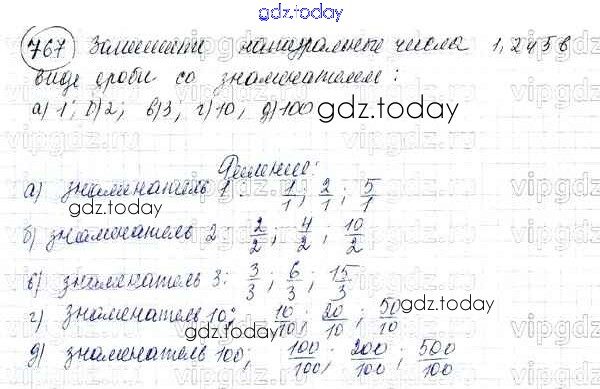 gdz.today
767 Запишите натуральные числа 1, 2 и 5 в
виде дроби со знаменателем:
а) 1; б) 2; в) 3; г) 10; д) 100
gdz.today
Решение:
а) знаменатель 1: 1/1; 2/1; 5/1
gdz.today
б) знаменатель 2: 2/2; 4/2; 10/2
в) знаменатель 3: 3/3; 6/3; 15/3
г) знаменатель 10; 10/10; 20/10; 50/10
gdz.today
д) знаменатель 100; 100/100; 200/100; 500/100